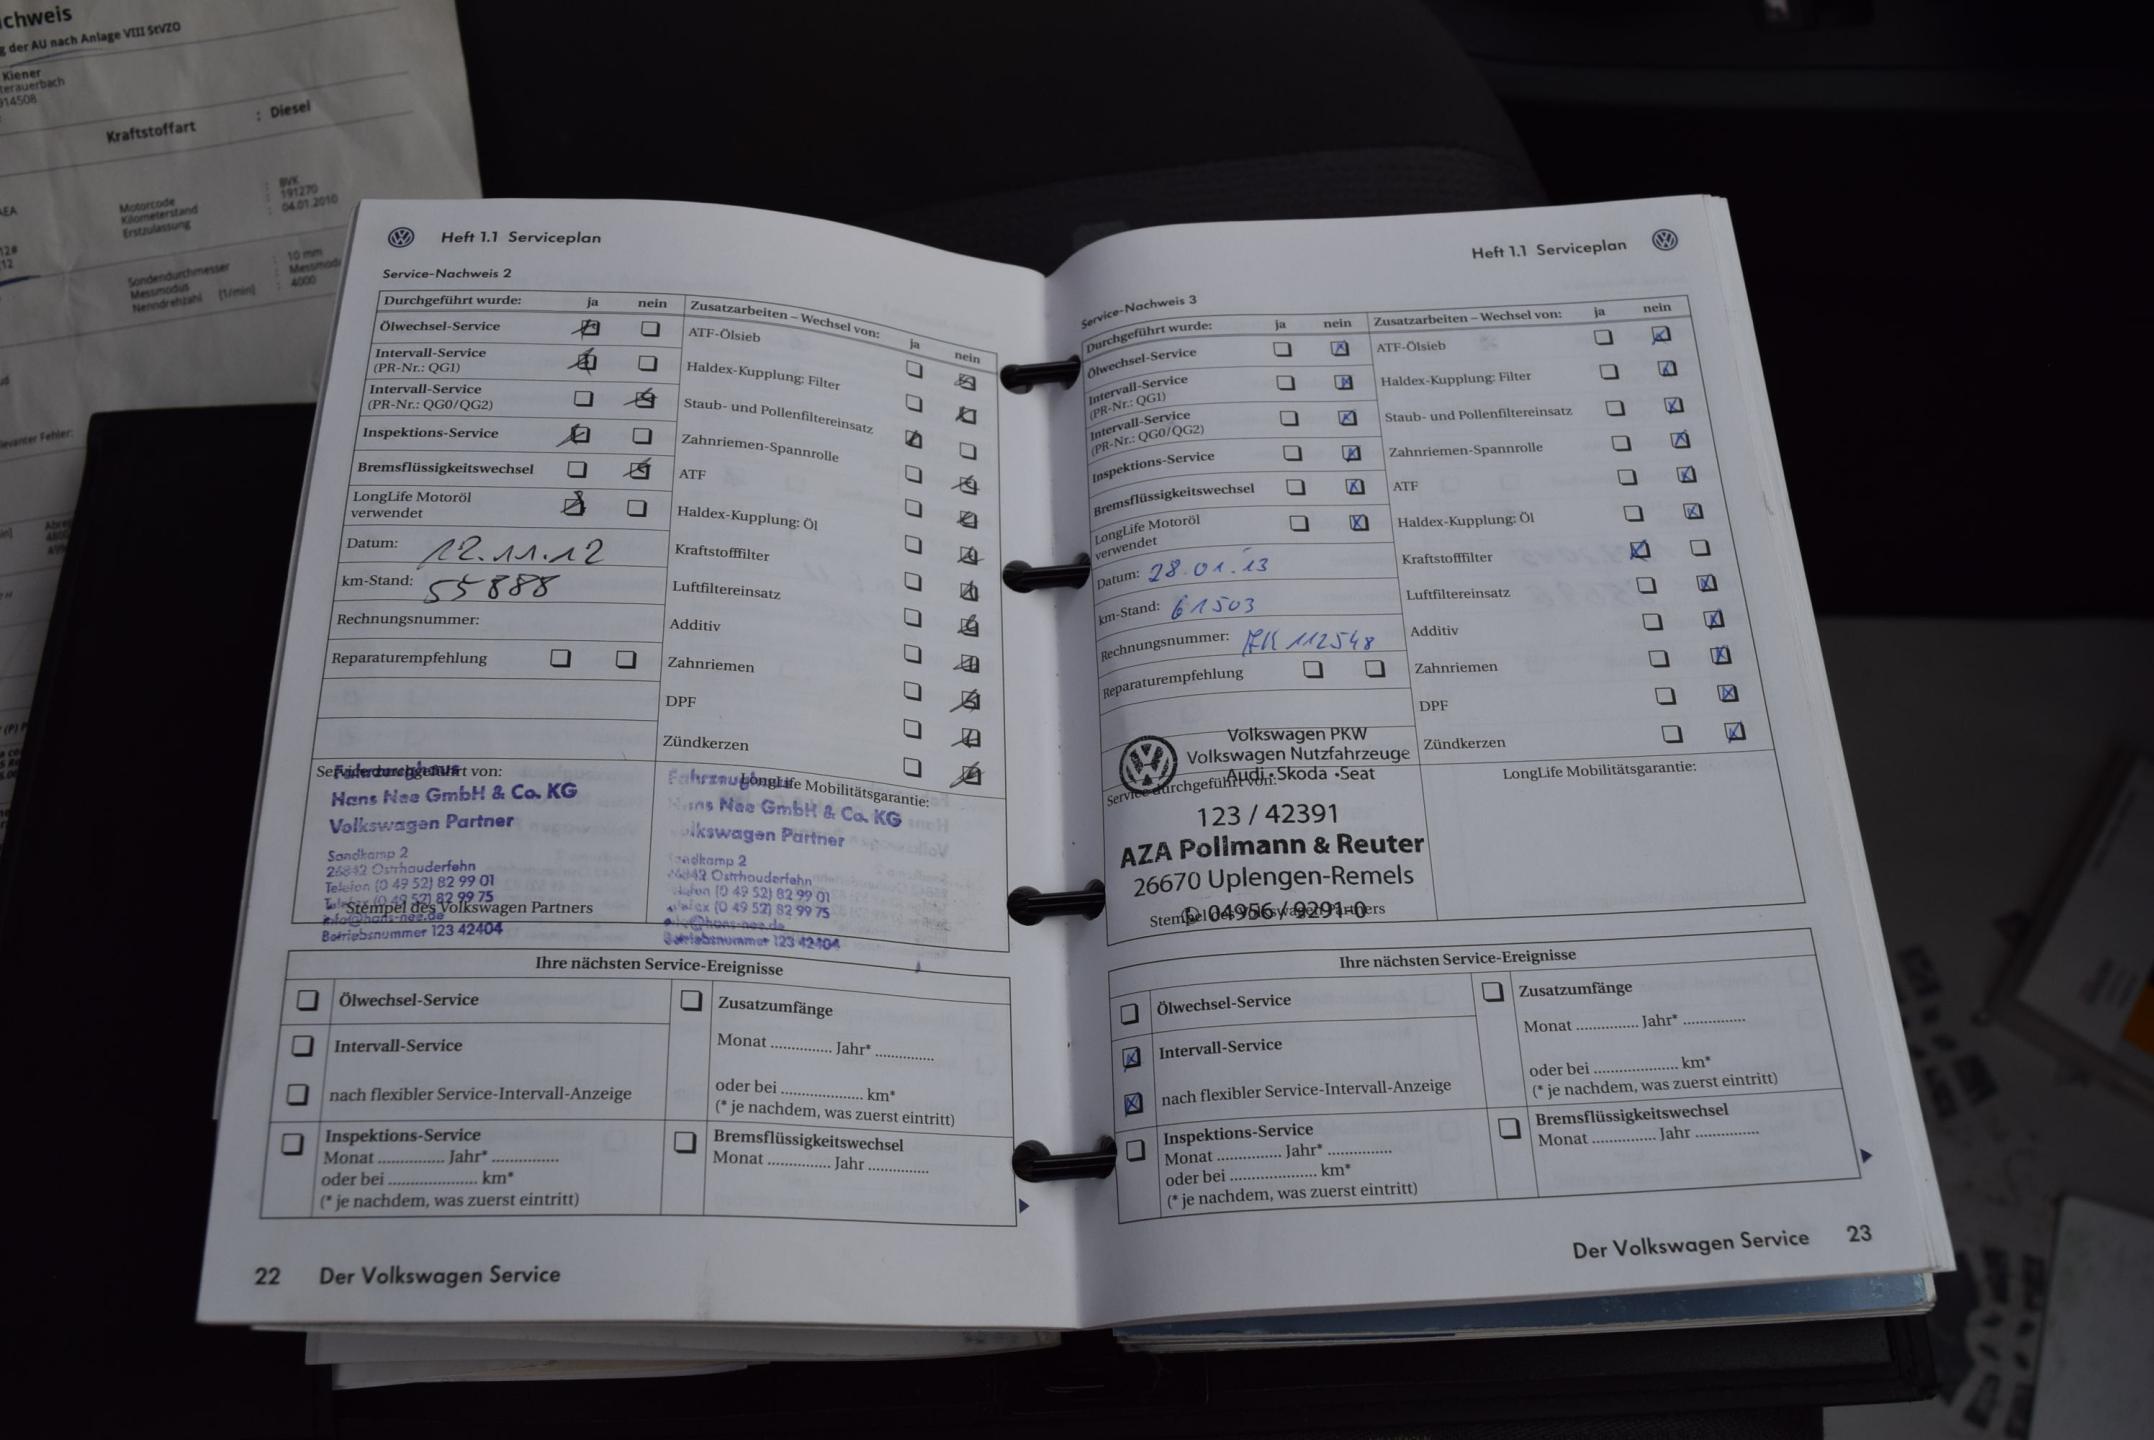 chweis
g der AU nach Anlage VIII StVZO
Kiener
terauerbach
914508
Kraftstoffart : Diesel
AEA
Motorcode : BVK
Kilometerstand : 191270
Erstzulassung : 04.01.2010
12#
12
Sondendurchmesser : 10 mm
Messmodus : Messmod
Nenndrehzahl [1/min] : 4000
levanter Fehler:
Heft 1.1 Serviceplan
Service-Nachweis 2
Durchgeführt wurde: ja nein
Ölwechsel-Service
Intervall-Service
(PR-Nr.: QG1)
Intervall-Service
(PR-Nr.: QG0/QG2)
Inspektions-Service
Bremsflüssigkeitswechsel
LongLife Motoröl
verwendet
Datum: 12.11.12
km-Stand: 55888
Rechnungsnummer:
Reparaturempfehlung
Zusatzarbeiten – Wechsel von:
ja nein
ATF-Ölsieb
Haldex-Kupplung: Filter
Staub- und Pollenfiltereinsatz
Zahnriemen-Spannrolle
ATF
Haldex-Kupplung: Öl
Kraftstofffilter
Luftfiltereinsatz
Additiv
Zahnriemen
DPF
Zündkerzen
Service durchgeführt von:
Hans Nee GmbH & Co. KG
Volkswagen Partner
Sandkamp 2
26842 Ostrhauderfehn
Telefon (0 49 52) 82 99 01
Telefax (0 49 52) 82 99 75
info@hans-nee.de
Stempel des Volkswagen Partners
Betriebsnummer 123 42404
LongLife Mobilitätsgarantie:
Fahrzeughaus
Hans Nee GmbH & Co. KG
Volkswagen Partner
Sandkamp 2
26842 Ostrhauderfehn
Telefon (0 49 52) 82 99 01
Telefax (0 49 52) 82 99 75
info@hans-nee.de
Betriebsnummer 123 42404
Ihre nächsten Service-Ereignisse
Ölwechsel-Service
Intervall-Service
nach flexibler Service-Intervall-Anzeige
Inspektions-Service
Monat .............. Jahr* ..............
oder bei .................... km*
(* je nachdem, was zuerst eintritt)
Zusatzumfänge
Monat .............. Jahr* ..............
oder bei .................... km*
(* je nachdem, was zuerst eintritt)
Bremsflüssigkeitswechsel
Monat .............. Jahr ..............
22 Der Volkswagen Service
Heft 1.1 Serviceplan
Service-Nachweis 3
Durchgeführt wurde: ja nein
Ölwechsel-Service
Intervall-Service
(PR-Nr.: QG1)
Intervall-Service
(PR-Nr.: QG0/QG2)
Inspektions-Service
Bremsflüssigkeitswechsel
LongLife Motoröl
verwendet
Datum: 28.01.13
km-Stand: 61503
Rechnungsnummer: 112548
Reparaturempfehlung
Zusatzarbeiten – Wechsel von: ja nein
ATF-Ölsieb
Haldex-Kupplung: Filter
Staub- und Pollenfiltereinsatz
Zahnriemen-Spannrolle
ATF
Haldex-Kupplung: Öl
Kraftstofffilter
Luftfiltereinsatz
Additiv
Zahnriemen
DPF
Zündkerzen
Volkswagen PKW
Volkswagen Nutzfahrzeuge
Audi • Skoda • Seat
Service durchgeführt von:
123 / 42391
AZA Pollmann & Reuter
26670 Uplengen-Remels
04956 / 9291-0
Stempel des Volkswagen Partners
LongLife Mobilitätsgarantie:
Ihre nächsten Service-Ereignisse
Ölwechsel-Service
Intervall-Service
nach flexibler Service-Intervall-Anzeige
Inspektions-Service
Monat .............. Jahr* ..............
oder bei .................... km*
(* je nachdem, was zuerst eintritt)
Zusatzumfänge
Monat .............. Jahr* ..............
oder bei .................... km*
(* je nachdem, was zuerst eintritt)
Bremsflüssigkeitswechsel
Monat .............. Jahr ..............
Der Volkswagen Service 23